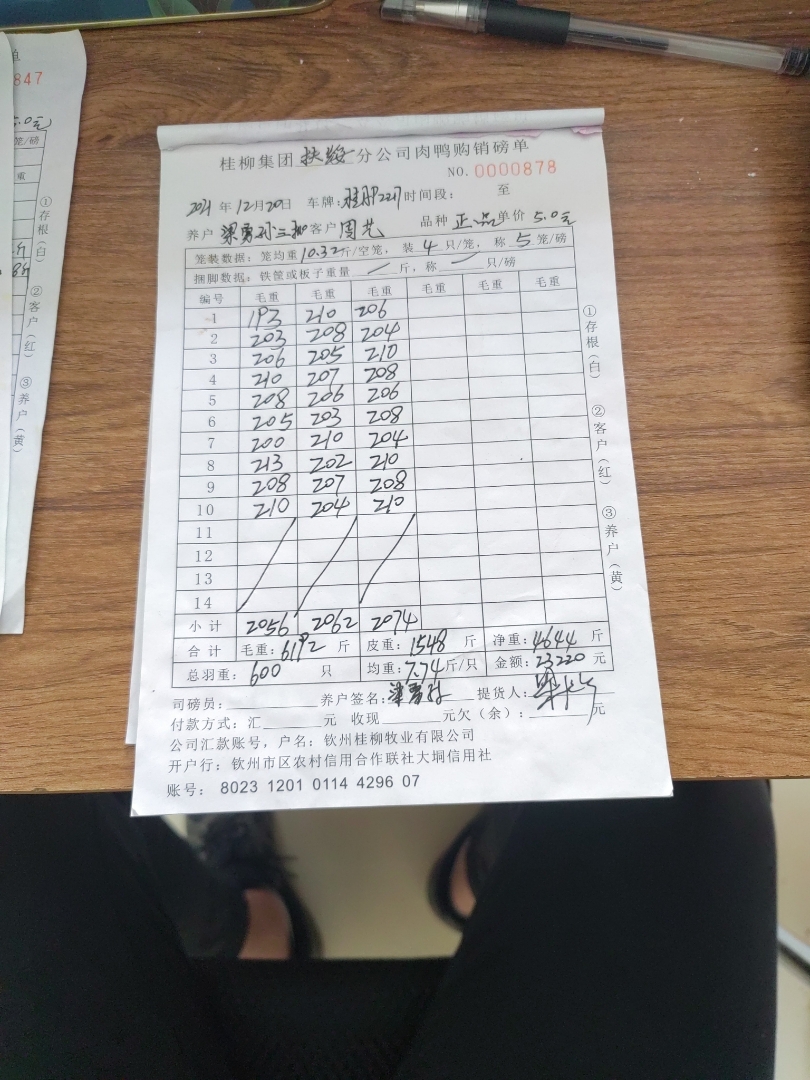 单
847
5.0元
笼/磅
重
斤
8斤
①存根(白)
②客户(红)
③养户(黄)
桂柳集团 扶绥 分公司肉鸭购销磅单
NO.0000878
2021年12月20日 车牌: 时间段: 至
养户 梁勇孙 客户 周艺 品种 正品 单价 5.0元
笼装数据: 笼均重10.32斤/空笼, 装4只/笼, 称5笼/磅
捆脚数据: 铁筐或板子重量 / 斤, 称 只/磅
编号 毛重 毛重 毛重 毛重 毛重 毛重
1 193 210 206
2 203 208 204
3 206 205 210
4 210 207 208
5 208 206 206
6 205 203 208
7 200 210 204
8 213 202 210
9 208 207 208
10 210 204 210
11
12
13
14
小计 2056 2062 2074
合计 毛重: 6192 斤 皮重: 1548 斤 净重: 4644 斤
总羽重: 600 只 均重: 7.74斤/只 金额: 23220 元
司磅员: 养户签名: 梁勇孙 提货人:
付款方式: 汇 元 收现 元欠(余): 元
公司汇款账号, 户名: 钦州桂柳牧业有限公司
开户行: 钦州市区农村信用合作联社大垌信用社
账号: 8023 1201 0114 4296 07
①存根(白)
②客户(红)
③养户(黄)